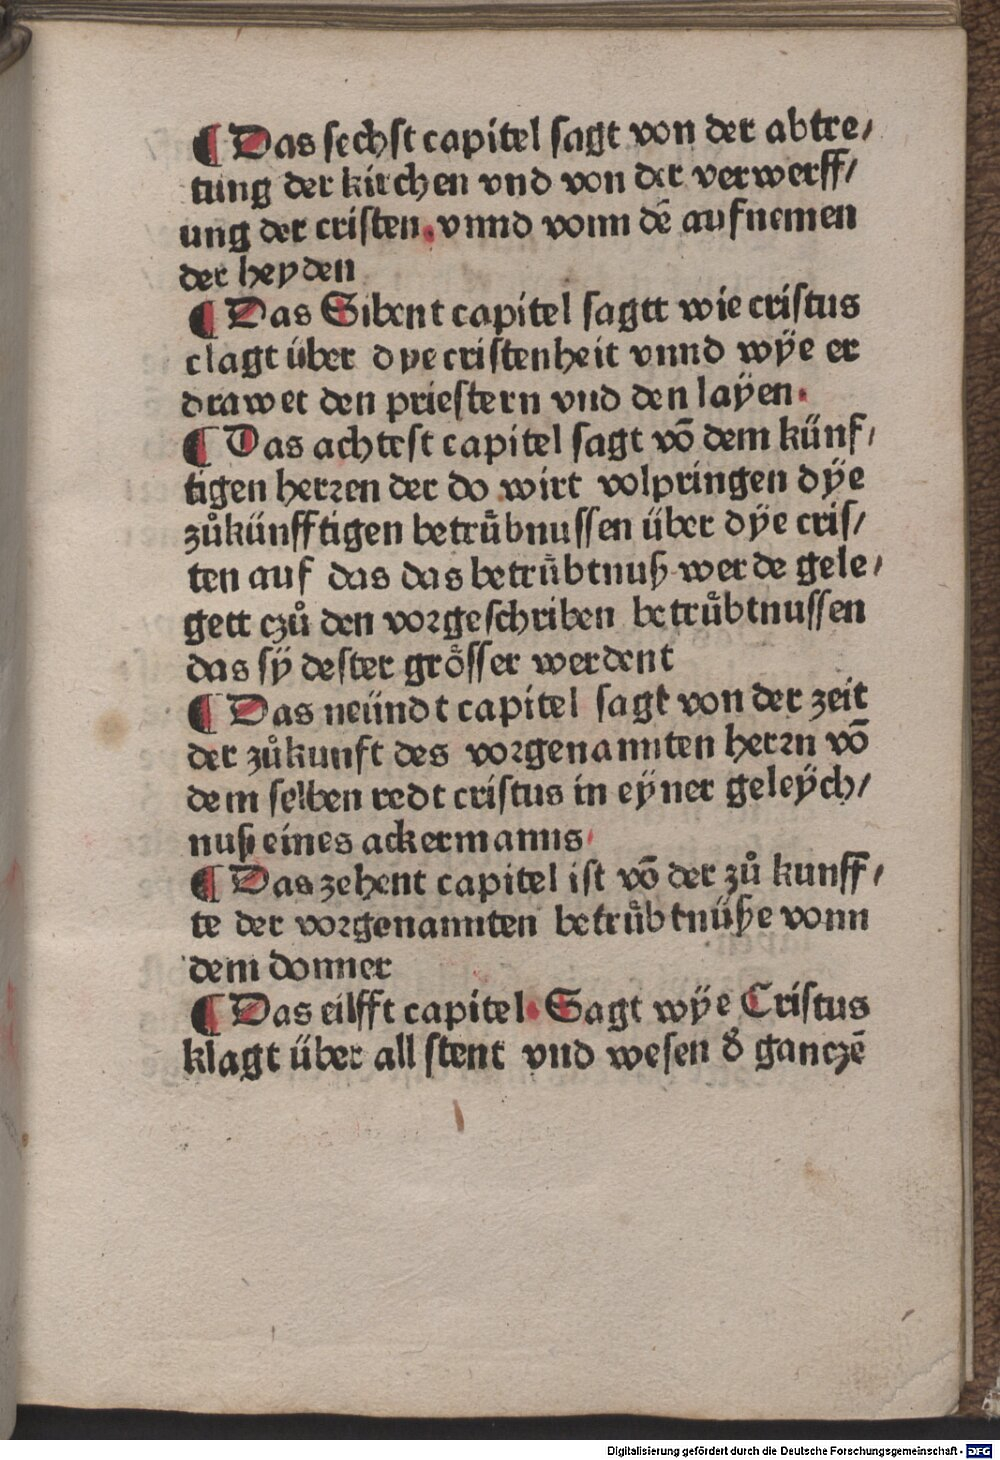 ¶ Das sechst capitel sagt von der abtre/
tung der kirchen vnd von der verwerff/
ung der cristen. vnnd vonn dē aufnemen
der heyden
¶ Das Sibent capitel sagtt wie cristus
clagt über dye cristenheit vnnd wÿe er
drawet den priestern vnd den laÿen.
¶ Das achtest capitel sagt vō dem künf/
tigen herꝛen der do wirt volpringen dÿe
zůkünfftigen betrůbnussen über dÿe cris/
ten auf das das betrůbtnuß werde gele/
gett czů den voꝛgeschriben betrůbtnussen
das sÿ dester grösser werdent
¶ Das neündt capitel sagt von der zeit
der zůkunft des voꝛgenannten herꝛn vō
dem selben redt cristus in eÿner geleÿch/
nuß eines ackermanns
¶ Das zehent capitel ist vō der zů kunff/
te der voꝛgenannten betrůbtnüße vonn
dem donner
¶ Das eilfft capitel. Sagt wÿe Cristus
klagt über all stent vnd wesen d̛ ganczē
Digitalisierung gefördert durch die Deutsche Forschungsgemeinschaft - DFG